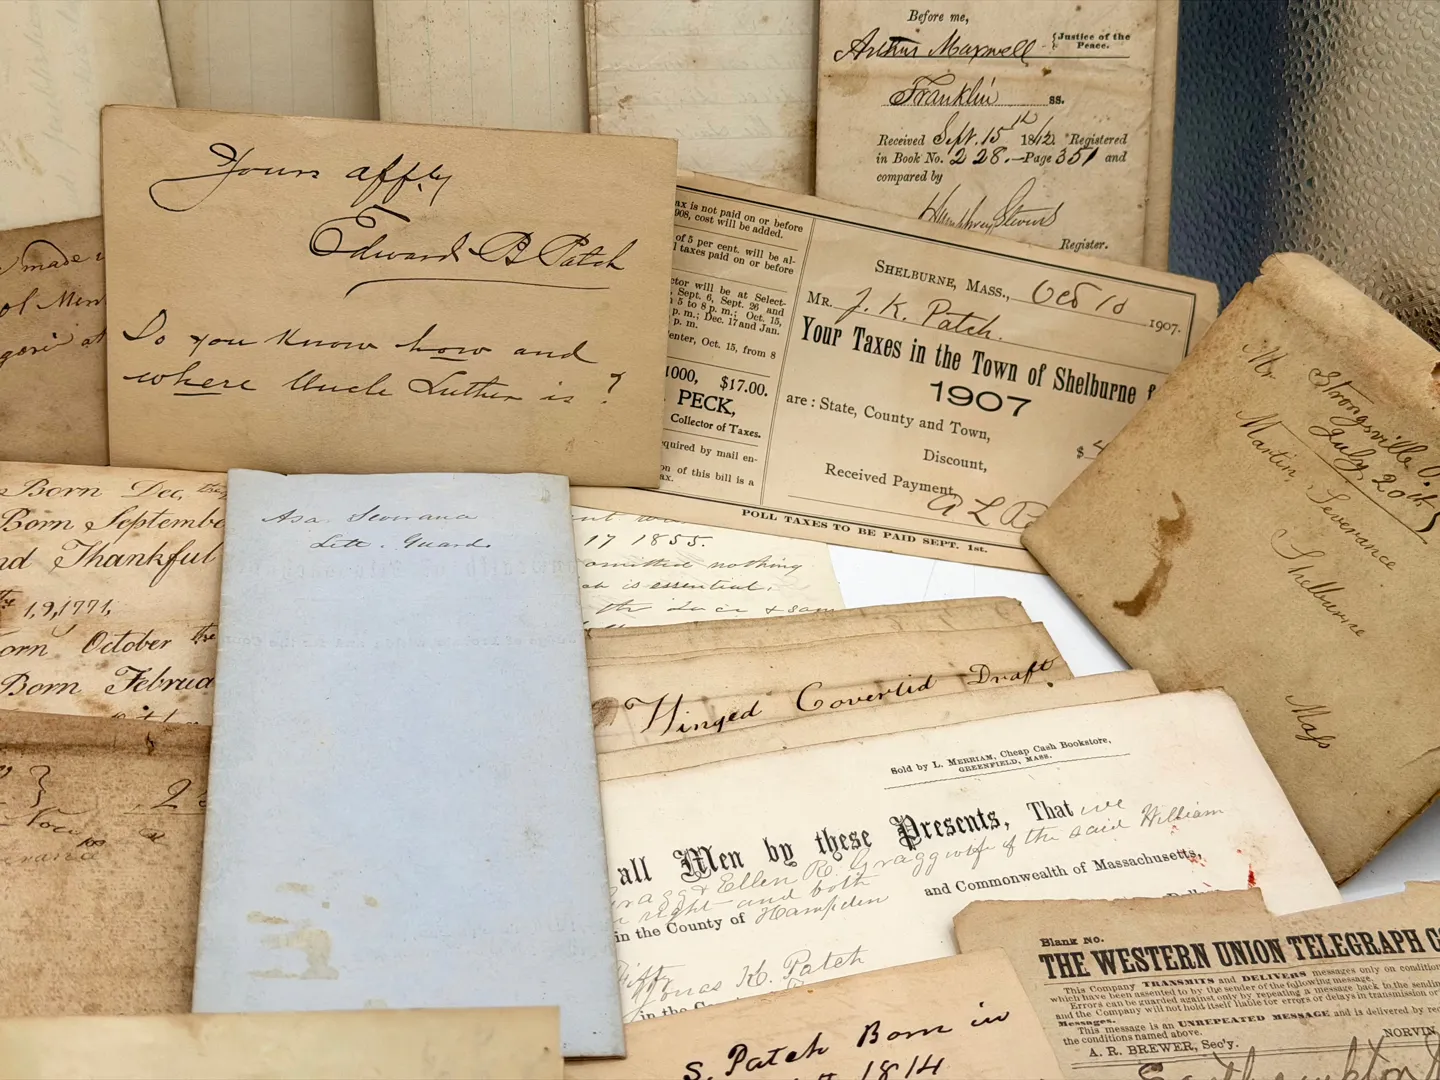 Before me,
Arthur Maxwell
Justice of the
Peace.
Franklin ss.
Received Sept. 15th 1842 Registered
in Book No. 228.—Page 351 and
compared by
Humphrey Stevens
Register.
Yours affly
Edward B Patch
Do you know how and
where Uncle Luther is?
made
ax is not paid on or before
908, cost will be added.
of 5 per cent. will be al-
l taxes paid on or before
ctor will be at Select-
Sept. 6, Sept. 26 and
5 to 8 p. m.; Oct. 15,
p. m.; Dec. 17 and Jan.
p. m.
enter, Oct. 15, from 8
1000, $17.00.
PECK,
Collector of Taxes.
equired by mail en-
on of this bill is a
ax.
SHELBURNE, MASS., Oct 10 1907.
MR. J. K. Patch.
Your Taxes in the Town of Shelburne f
1907
are: State, County and Town,
$ 4
Discount,
Received Payment,
A L Pe
POLL TAXES TO BE PAID SEPT. 1st.
Strongsville O.
July, 20th
Mr. Martin Severance
Shelburne
Mass
Born Dec, the
Born Septembe
nd Thankful
1,9,1771,
orn October the
Born Februa
Asa Severance
Lett. Guard.
17 1855.
omitted nothing
is essential.
the
Hinged Coverlid Draft
Sold by L. MERRIAM, Cheap Cash Bookstore,
GREENFIELD, MASS.
all Men by these Presents, That we
ragg & Ellen R. Gragg wife of the said William
right and both
and Commonwealth of Massachusetts,
in the County of Hampden
Dollars
Fifty
Jonas K. Patch
in the
S. Patch Born in
1814
Blank No.
THE WESTERN UNION TELEGRAPH C
This Company TRANSMITS and DELIVERS messages only on condition
which have been assented to by the sender of the following message.
Errors can be guarded against only by repeating a message back to the sending
and the Company will not hold itself liable for errors or delays in transmission or
Messages.
This message is an UNREPEATED MESSAGE and is delivered by re
the conditions named above.
A. R. BREWER, Sec'y.
NORVIN